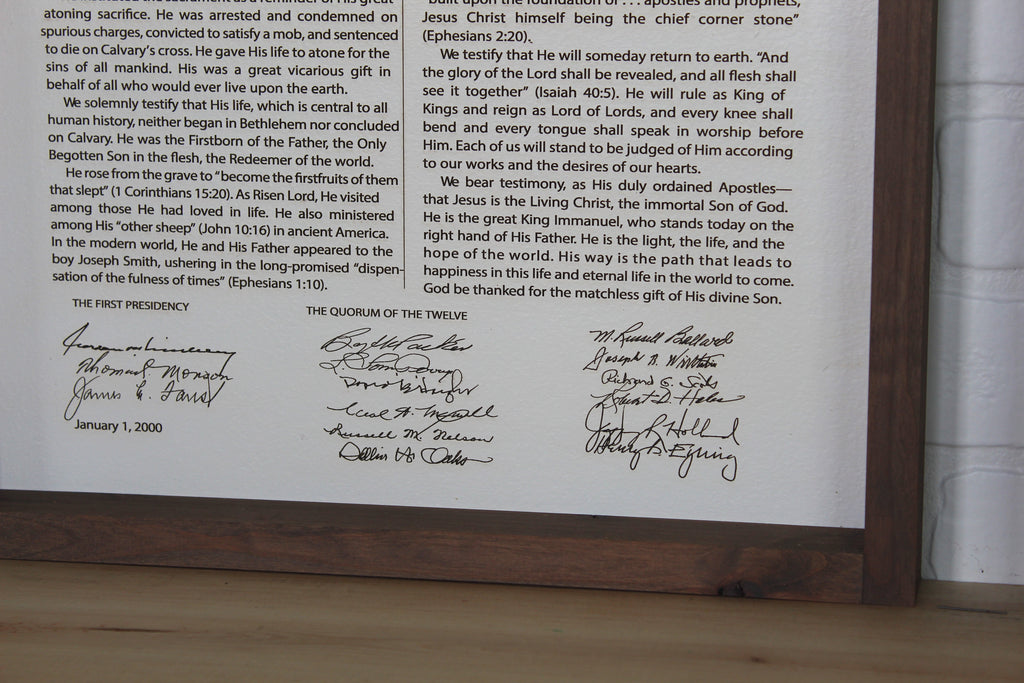 atoning sacrifice. He was arrested and condemned on
spurious charges, convicted to satisfy a mob, and sentenced
to die on Calvary's cross. He gave His life to atone for the
sins of all mankind. His was a great vicarious gift in
behalf of all who would ever live upon the earth.
We solemnly testify that His life, which is central to all
human history, neither began in Bethlehem nor concluded
on Calvary. He was the Firstborn of the Father, the Only
Begotten Son in the flesh, the Redeemer of the world.
He rose from the grave to “become the firstfruits of them
that slept” (1 Corinthians 15:20). As Risen Lord, He visited
among those He had loved in life. He also ministered
among His “other sheep” (John 10:16) in ancient America.
In the modern world, He and His Father appeared to the
boy Joseph Smith, ushering in the long-promised “dispen-
sation of the fulness of times” (Ephesians 1:10).
built upon the foundation of . . . apostles and prophets,
Jesus Christ himself being the chief corner stone”
(Ephesians 2:20).
We testify that He will someday return to earth. “And
the glory of the Lord shall be revealed, and all flesh shall
see it together” (Isaiah 40:5). He will rule as King of
Kings and reign as Lord of Lords, and every knee shall
bend and every tongue shall speak in worship before
Him. Each of us will stand to be judged of Him according
to our works and the desires of our hearts.
We bear testimony, as His duly ordained Apostles—
that Jesus is the Living Christ, the immortal Son of God.
He is the great King Immanuel, who stands today on the
right hand of His Father. He is the light, the life, and the
hope of the world. His way is the path that leads to
happiness in this life and eternal life in the world to come.
God be thanked for the matchless gift of His divine Son.
THE FIRST PRESIDENCY
Thomas S. Monson
James E. Faust
January 1, 2000
THE QUORUM OF THE TWELVE
Boyd K. Packer
L. Tom Perry
David B. Haight
Neal A. Maxwell
Russell M. Nelson
Dallin H. Oaks
M. Russell Ballard
Joseph B. Wirthlin
Richard G. Scott
Robert D. Hales
Jeffrey R. Holland
Henry B. Eyring